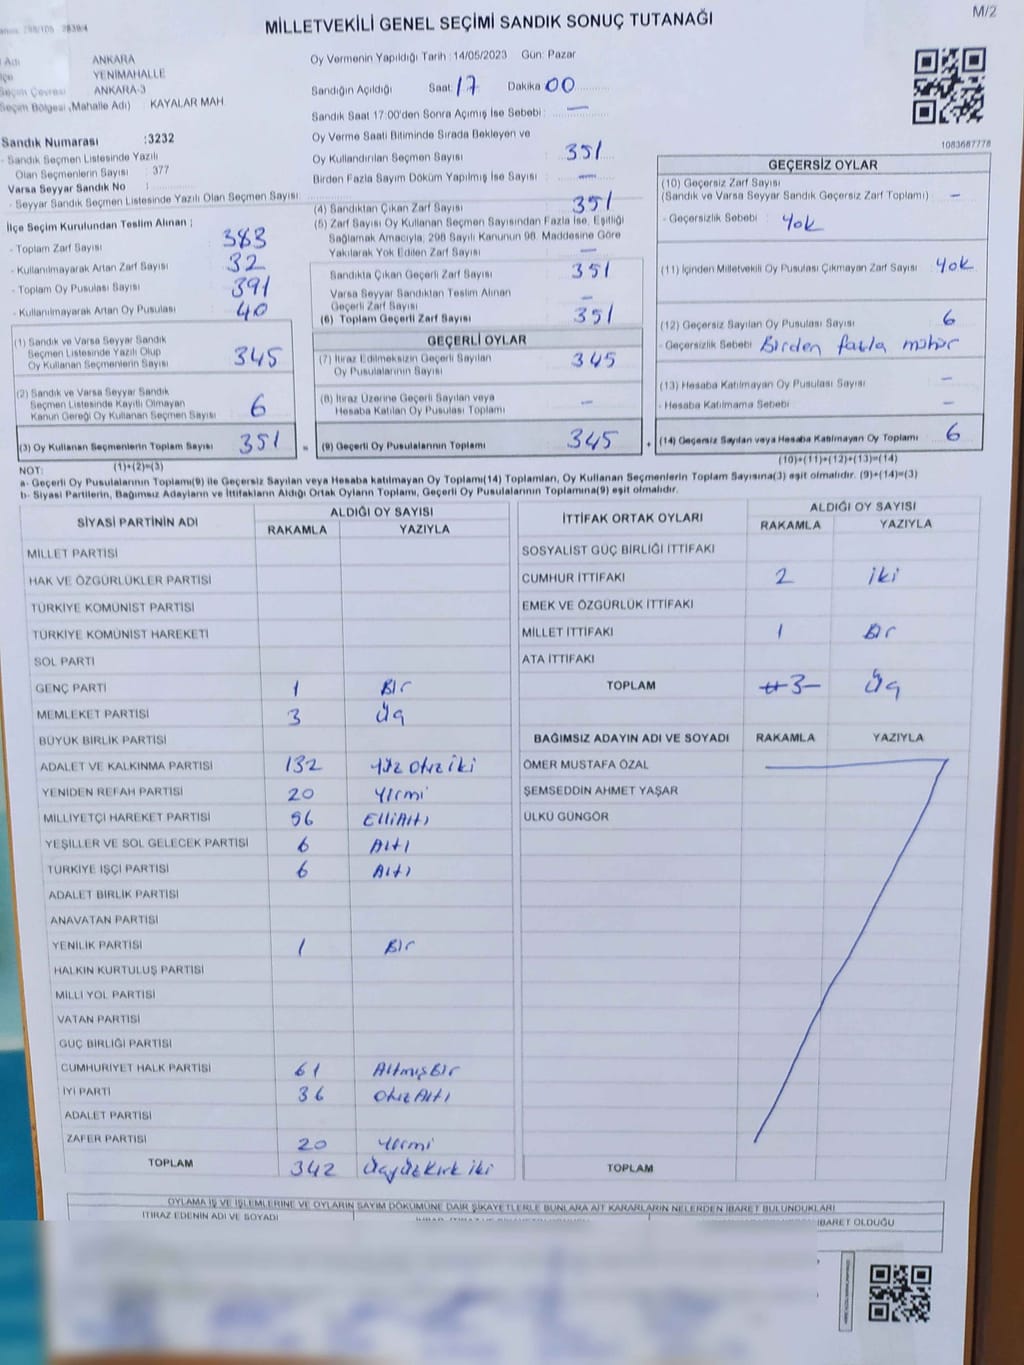 M/2
MİLLETVEKİLİ GENEL SEÇİMİ SANDIK SONUÇ TUTANAĞI
Adı ANKARA
YENİMAHALLE
Seçim Çevresi ANKARA-3
Seçim Bölgesi (Mahalle Adı) KAYALAR MAH.
Oy Vermenin Yapıldığı Tarih : 14/05/2023 Gün: Pazar
Sandığın Açıldığı Saat: 17 Dakika 00
Sandık Saat 17:00'den Sonra Açımış İse Sebebi : —
Oy Verme Saati Bitiminde Sırada Bekleyen ve
Oy Kullandırılan Seçmen Sayısı : 351
Birden Fazla Sayım Döküm Yapılmış İse Sayısı : —
1083687778
Sandık Numarası :3232
- Sandık Seçmen Listesinde Yazılı
Olan Seçmenlerin Sayısı : 377
Varsa Seyyar Sandık No :
- Seyyar Sandık Seçmen Listesinde Yazılı Olan Seçmen Sayısı :
İlçe Seçim Kurulundan Teslim Alınan ;
- Toplam Zarf Sayısı 383
- Kullanılmayarak Artan Zarf Sayısı 32
- Toplam Oy Pusulası Sayısı 391
- Kullanılmayarak Artan Oy Pusulası 40
(1) Sandık ve Varsa Seyyar Sandık
Seçmen Listesinde Yazılı Olup
Oy Kullanan Seçmenlerin Sayısı 345
(2) Sandık ve Varsa Seyyar Sandık
Seçmen Listesinde Kayıtlı Olmayan
Kanun Gereği Oy Kullanan Seçmen Sayısı 6
(3) Oy Kullanan Seçmenlerin Toplam Sayısı 351 =
(1)+(2)=(3)
(4) Sandıktan Çıkan Zarf Sayısı 351
(5) Zarf Sayısı Oy Kullanan Seçmen Sayısından Fazla İse, Eşitliği
Sağlamak Amacıyla, 298 Sayılı Kanunun 98. Maddesine Göre
Yakılarak Yok Edilen Zarf Sayısı —
Sandıkta Çıkan Geçerli Zarf Sayısı 351
Varsa Seyyar Sandıktan Teslim Alınan
Geçerli Zarf Sayısı —
(6) Toplam Geçerli Zarf Sayısı 351
GEÇERLİ OYLAR
(7) İtiraz Edilmeksizin Geçerli Sayılan
Oy Pusulalarının Sayısı 345
(8) İtiraz Üzerine Geçerli Sayılan veya
Hesaba Katılan Oy Pusulası Toplamı —
(9) Geçerli Oy Pusulalarının Toplamı 345 +
GEÇERSİZ OYLAR
(10) Geçersiz Zarf Sayısı
(Sandık ve Varsa Seyyar Sandık Geçersiz Zarf Toplamı) : —
- Geçersizlik Sebebi : Yok
(11) İçinden Milletvekili Oy Pusulası Çıkmayan Zarf Sayısı : Yok
(12) Geçersiz Sayılan Oy Pusulası Sayısı : 6
- Geçersizlik Sebebi Birden fazla mühür
(13) Hesaba Katılmayan Oy Pusulası Sayısı : —
- Hesaba Katılmama Sebebi : —
(14) Geçersiz Sayılan veya Hesaba Katılmayan Oy Toplamı 6
(10)+(11)+(12)+(13)=(14)
NOT:
a- Geçerli Oy Pusulalarının Toplamı(9) ile Geçersiz Sayılan veya Hesaba katılmayan Oy Toplamı(14) Toplamları, Oy Kullanan Seçmenlerin Toplam Sayısına(3) eşit olmalıdır. (9)+(14)=(3)
b- Siyasi Partilerin, Bağımsız Adayların ve İttifakların Aldığı Ortak Oyların Toplamı, Geçerli Oy Pusulalarının Toplamına(9) eşit olmalıdır.
SİYASİ PARTİNİN ADI ALDIĞI OY SAYISI
RAKAMLA YAZIYLA
MİLLET PARTİSİ
HAK VE ÖZGÜRLÜKLER PARTİSİ
TÜRKİYE KOMÜNİST PARTİSİ
TÜRKİYE KOMÜNİST HAREKETİ
SOL PARTİ
GENÇ PARTİ 1 Bir
MEMLEKET PARTİSİ 3 Üç
BÜYÜK BİRLİK PARTİSİ
ADALET VE KALKINMA PARTİSİ 132 Yüz Otuz iki
YENİDEN REFAH PARTİSİ 20 Yirmi
MİLLİYETÇİ HAREKET PARTİSİ 56 ElliAltı
YEŞİLLER VE SOL GELECEK PARTİSİ 6 Altı
TÜRKİYE İŞÇİ PARTİSİ 6 Altı
ADALET BİRLİK PARTİSİ
ANAVATAN PARTİSİ
YENİLİK PARTİSİ 1 Bir
HALKIN KURTULUŞ PARTİSİ
MİLLİ YOL PARTİSİ
VATAN PARTİSİ
GÜÇ BİRLİĞİ PARTİSİ
CUMHURİYET HALK PARTİSİ 61 AltmışBir
İYİ PARTİ 36 OtuzAltı
ADALET PARTİSİ
ZAFER PARTİSİ 20 Yirmi
TOPLAM 342 ÜçyüzKırk iki
İTTİFAK ORTAK OYLARI ALDIĞI OY SAYISI
RAKAMLA YAZIYLA
SOSYALİST GÜÇ BİRLİĞİ İTTİFAKI
CUMHUR İTTİFAKI 2 iki
EMEK VE ÖZGÜRLÜK İTTİFAKI
MİLLET İTTİFAKI 1 Bir
ATA İTTİFAKI
TOPLAM 3 Üç
BAĞIMSIZ ADAYIN ADI VE SOYADI RAKAMLA YAZIYLA
ÖMER MUSTAFA ÖZAL
ŞEMSEDDİN AHMET YAŞAR
ÜLKÜ GÜNGÖR
TOPLAM
OYLAMA İŞ VE İŞLEMLERİNE VE OYLARIN SAYIM DÖKÜMÜNE DAİR ŞİKAYETLERLE BUNLARA AİT KARARLARIN NELERDEN İBARET BULUNDUKLARI
İTİRAZ EDENİN ADI VE SOYADI
İBARET OLDUĞU